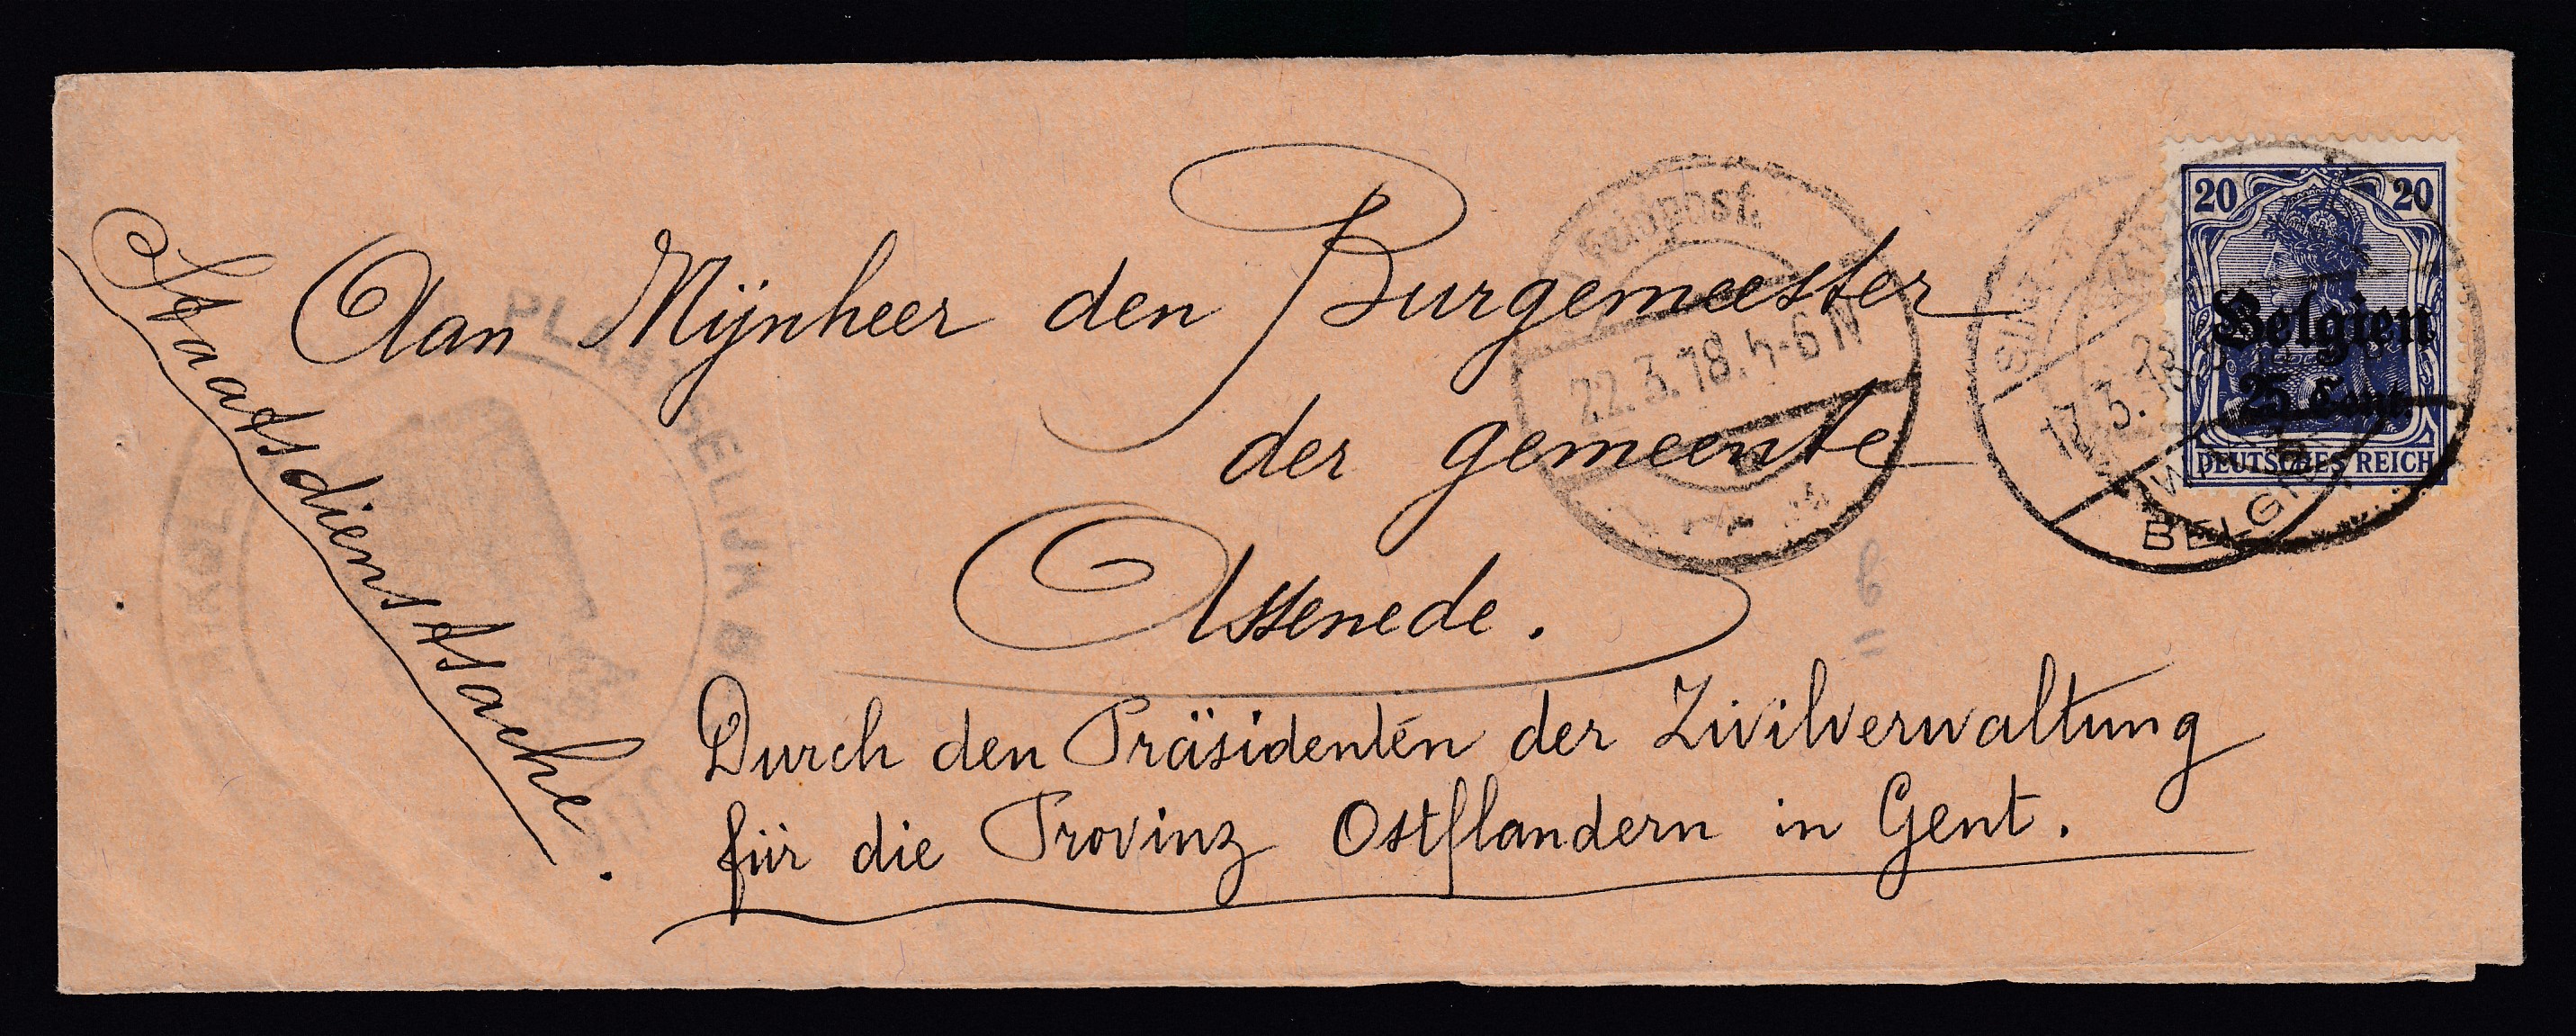 Staatsdienstsache.
Aan Mijnheer den Burgemeester
der gemeente
Assenede.
Durch den Präsidenten der Zivilverwaltung
für die Provinz Ostflandern in Gent.
Feldpost.
22.3.18.4-6N
20 20
Belgien
25 Cent.
DEUTSCHES REICH
BELGIEN